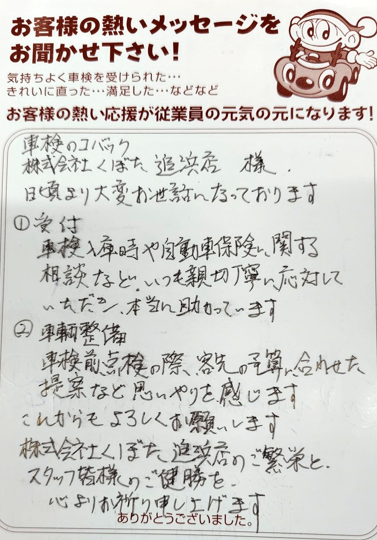 お客様の熱いメッセージを
お聞かせ下さい!
気持ちよく車検を受けられた…
きれいに直った…満足した…などなど
お客様の熱い応援が従業員の元気の元になります!
車検のコバック
株式会社くぼた 追浜店 様.
日頃より大変お世話になっております
①受付
車検入庫時や自動車保険に関する
相談など、いつも親切丁寧に応対して
いただき、本当に助かっています
②車輌整備
車検前点検の際、客先の予算に合わせた
提案など思いやりを感じます
これからもよろしくお願いします
株式会社くぼた 追浜店のご繁栄と、
スタッフ皆様のご健勝を、
心よりお祈り申し上げます
ありがとうございました。